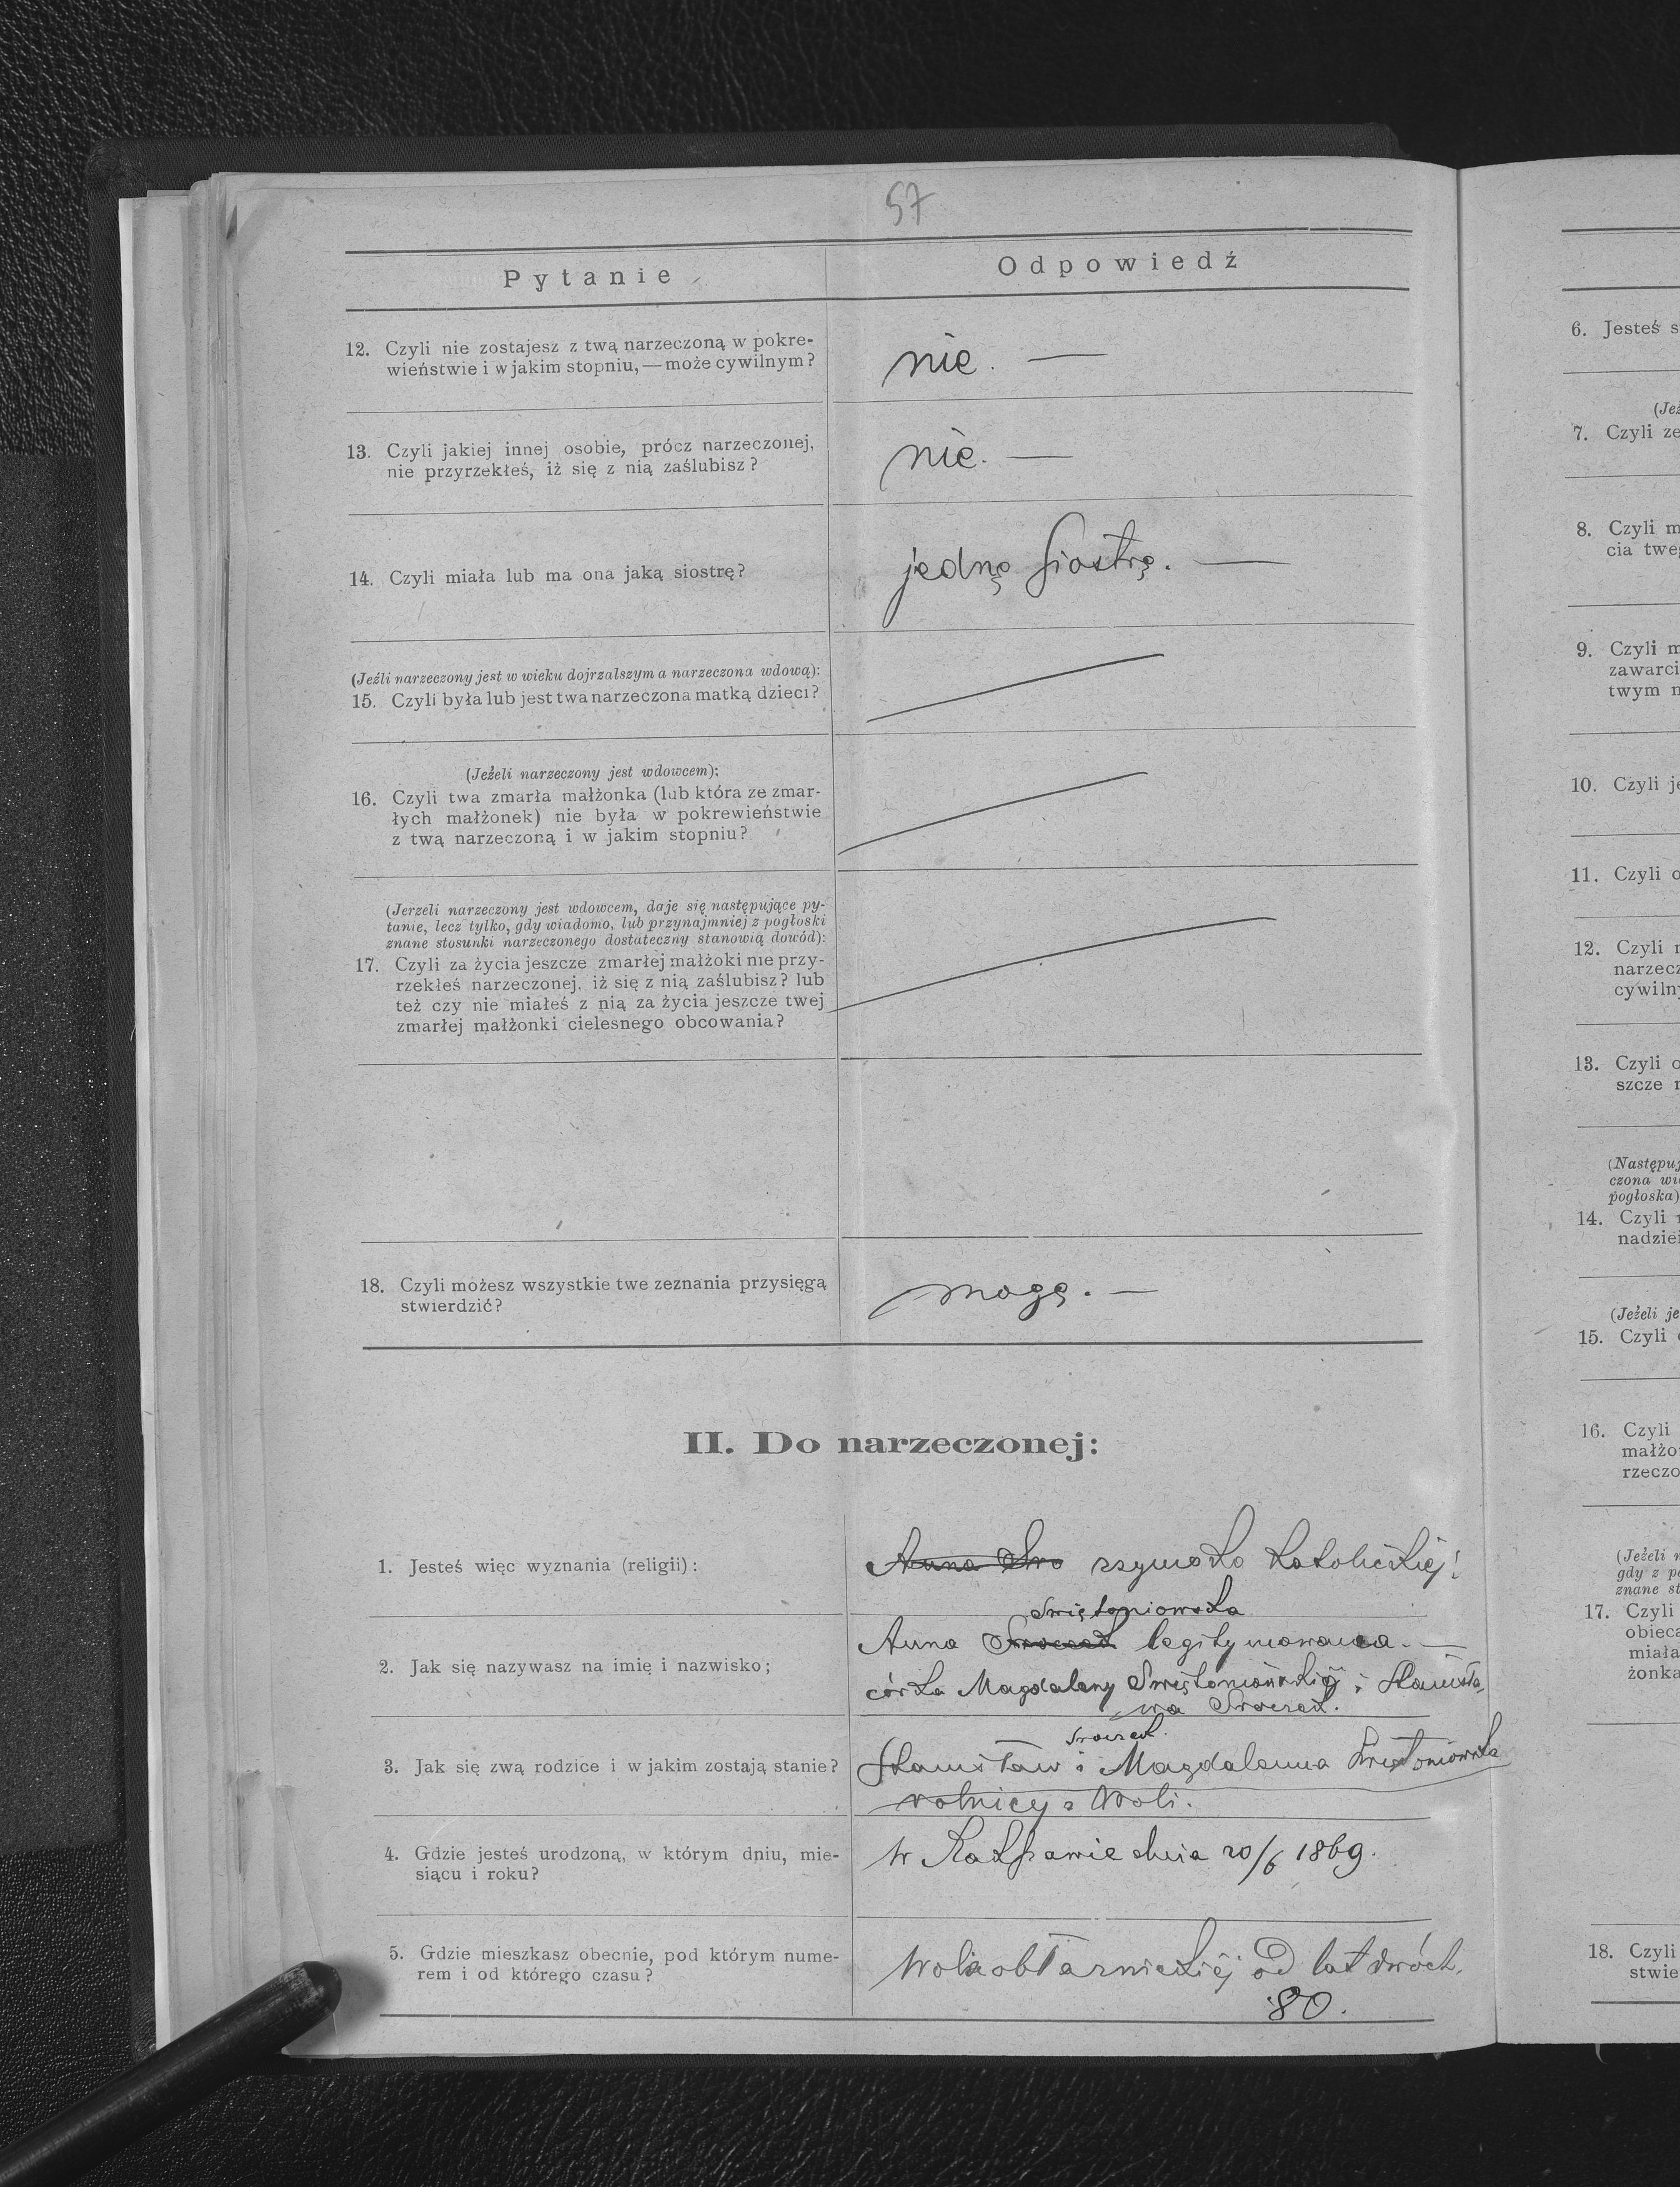 57
Pytanie
Odpowiedź
12. Czyli nie zostajesz z twą narzeczoną w pokre-
wieństwie i w jakim stopniu, — może cywilnym?
nie. —
13. Czyli jakiej innej osobie, prócz narzeczonej,
nie przyrzekłeś, iż się z nią zaślubisz?
nie. —
14. Czyli miała lub ma ona jaką siostrę?
jednę siostrę. —
(Jeźli narzeczony jest w wieku dojrzalszym a narzeczona wdową):
15. Czyli była lub jest twa narzeczona matką dzieci?
(Jeżeli narzeczony jest wdowcem):
16. Czyli twa zmarła małżonka (lub która ze zmar-
łych małżonek) nie była w pokrewieństwie
z twą narzeczoną i w jakim stopniu?
(Jerzeli narzeczony jest wdowcem, daje się następujące py-
tanie, lecz tylko, gdy wiadomo, lub przynajmniej z pogłoski
znane stosunki narzeczonego dostateczny stanowią dowód):
17. Czyli za życia jeszcze zmarłej małżoki nie przy-
rzekłeś narzeczonej, iż się z nią zaślubisz? lub
też czy nie miałeś z nią za życia jeszcze twej
zmarłej małżonki cielesnego obcowania?
18. Czyli możesz wszystkie twe zeznania przysięgą
stwierdzić?
mogę. —
II. Do narzeczonej:
1. Jesteś więc wyznania (religii):
Anna Swo rzymsko katolickiej!
2. Jak się nazywasz na imię i nazwisko;
Świętoniowska
Anna legitymowana. —
córka Magdaleny Świętoniowskiej i Stanisła
wa
3. Jak się zwą rodzice i w jakim zostają stanie?
Stanisław i Magdalena Świętoniowska
rolnicy z Woli.
4. Gdzie jesteś urodzoną, w którym dniu, mie-
siącu i roku?
W dnia 20/6 1869.
5. Gdzie mieszkasz obecnie, pod którym nume-
rem i od którego czasu?
od lat dwóch.
80.
6. Jesteś s
(Jeż
7. Czyli ze
8. Czyli m
cia tweg
9. Czyli m
zawarci
twym n
10. Czyli je
11. Czyli o
12. Czyli n
narzecz
cywiln
13. Czyli o
szcze n
(Następuj
czona wi
pogłoska)
14. Czyli
nadziei
(Jeżeli je
15. Czyli
16. Czyli
małżo
rzeczo
(Jeżeli n
gdy z po
znane st
17. Czyli
obieca
miała
żonka
18. Czyli
stwie